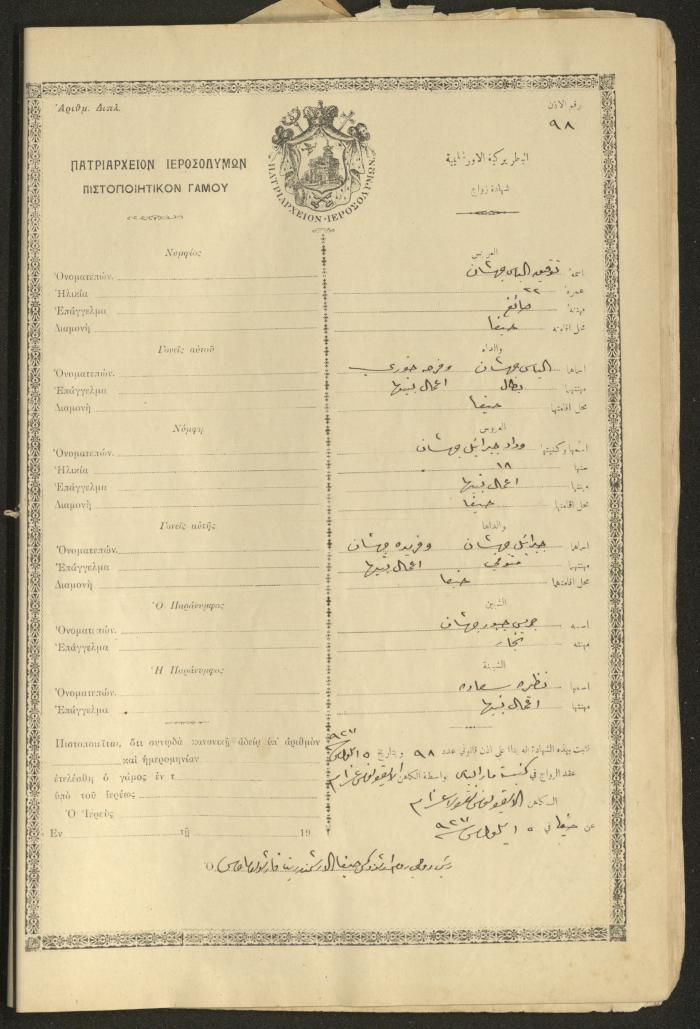 Ἀριθμ. Διπλ.
رقم الاذن
٩٨
ΠΑΤΡΙΑΡΧΕΙΟΝ ΙΕΡΟΣΟΛΥΜΩΝ
ΠΙΣΤΟΠΟΙΗΤΙΚΟΝ ΓΑΜΟΥ
ΠΑΤΡΙΑΡΧΕΙΟΝ·ΙΕΡΟΣΟΛΥΜΩΝ
البطريركية الاورشليمية
شهادة زواج
Νυμφίος
Ὀνοματεπών.
Ἡλικία
Ἐπάγγελμα
Διαμονὴ
Γονεῖς αὐτοῦ
Ὀνοματεπών.
Ἐπάγγελμα
Διαμονὴ
Νύμφη
Ὀνοματεπών.
Ἡλικία
Ἐπάγγελμα
Διαμονὴ
Γονεῖς αὐτῆς
Ὀνοματεπών.
Ἐπάγγελμα
Διαμονὴ
Ὁ Παράνυμφος
Ὀνοματεπών.
Ἐπάγγελμα
Ἡ Παράνυμφος
Ὀνοματεπών.
Ἐπάγγελμα
Πιστοποιεῖται, ὅτι συνῳδὰ κανονικῇ ἀδείᾳ ὑπ' ἀριθμὸν
καὶ ἡμερομηνίαν
ἐτελέσθη ὁ γάμος ἐν τ
ὑπὸ τοῦ Ἱερέως
Ὁ Ἱερεὺς
Ἐν τῇ 19
العريس
اسمه توفيق الياس جهشان
عمره ٢٢
مهنته صائغ
محل اقامته حيفا
والداه
اسماها الياس جهشان و فرحه خوري
مهنتها بطال اعمال بيتها
محل اقامتها حيفا
العروس
اسمها وكنيتها وداد جبرائيل جهشان
سنها ١٨
مهنتها اعمال بيتها
محل اقامتها حيفا
والداها
اسماها جبرائيل جهشان و فريده جهشان
مهنتها اعمال بيتها
محل اقامتها حيفا
الشبين
اسمه جهشان
مهنته نجار
الشبينة
اسمها نظره سعاده
مهنتها اعمال بيتها
ثبت بهذه الشهادة انه بناءً على اذن قانوني عدد ٩٨ و بتاريخ ١٥ ايلول ٩٢٧
عقد الزواج في كنيسة مار الياس بواسطة الكاهن
الكاهن
عن حيفا في ١٥ ايلول ٩٢٧
Ὁ